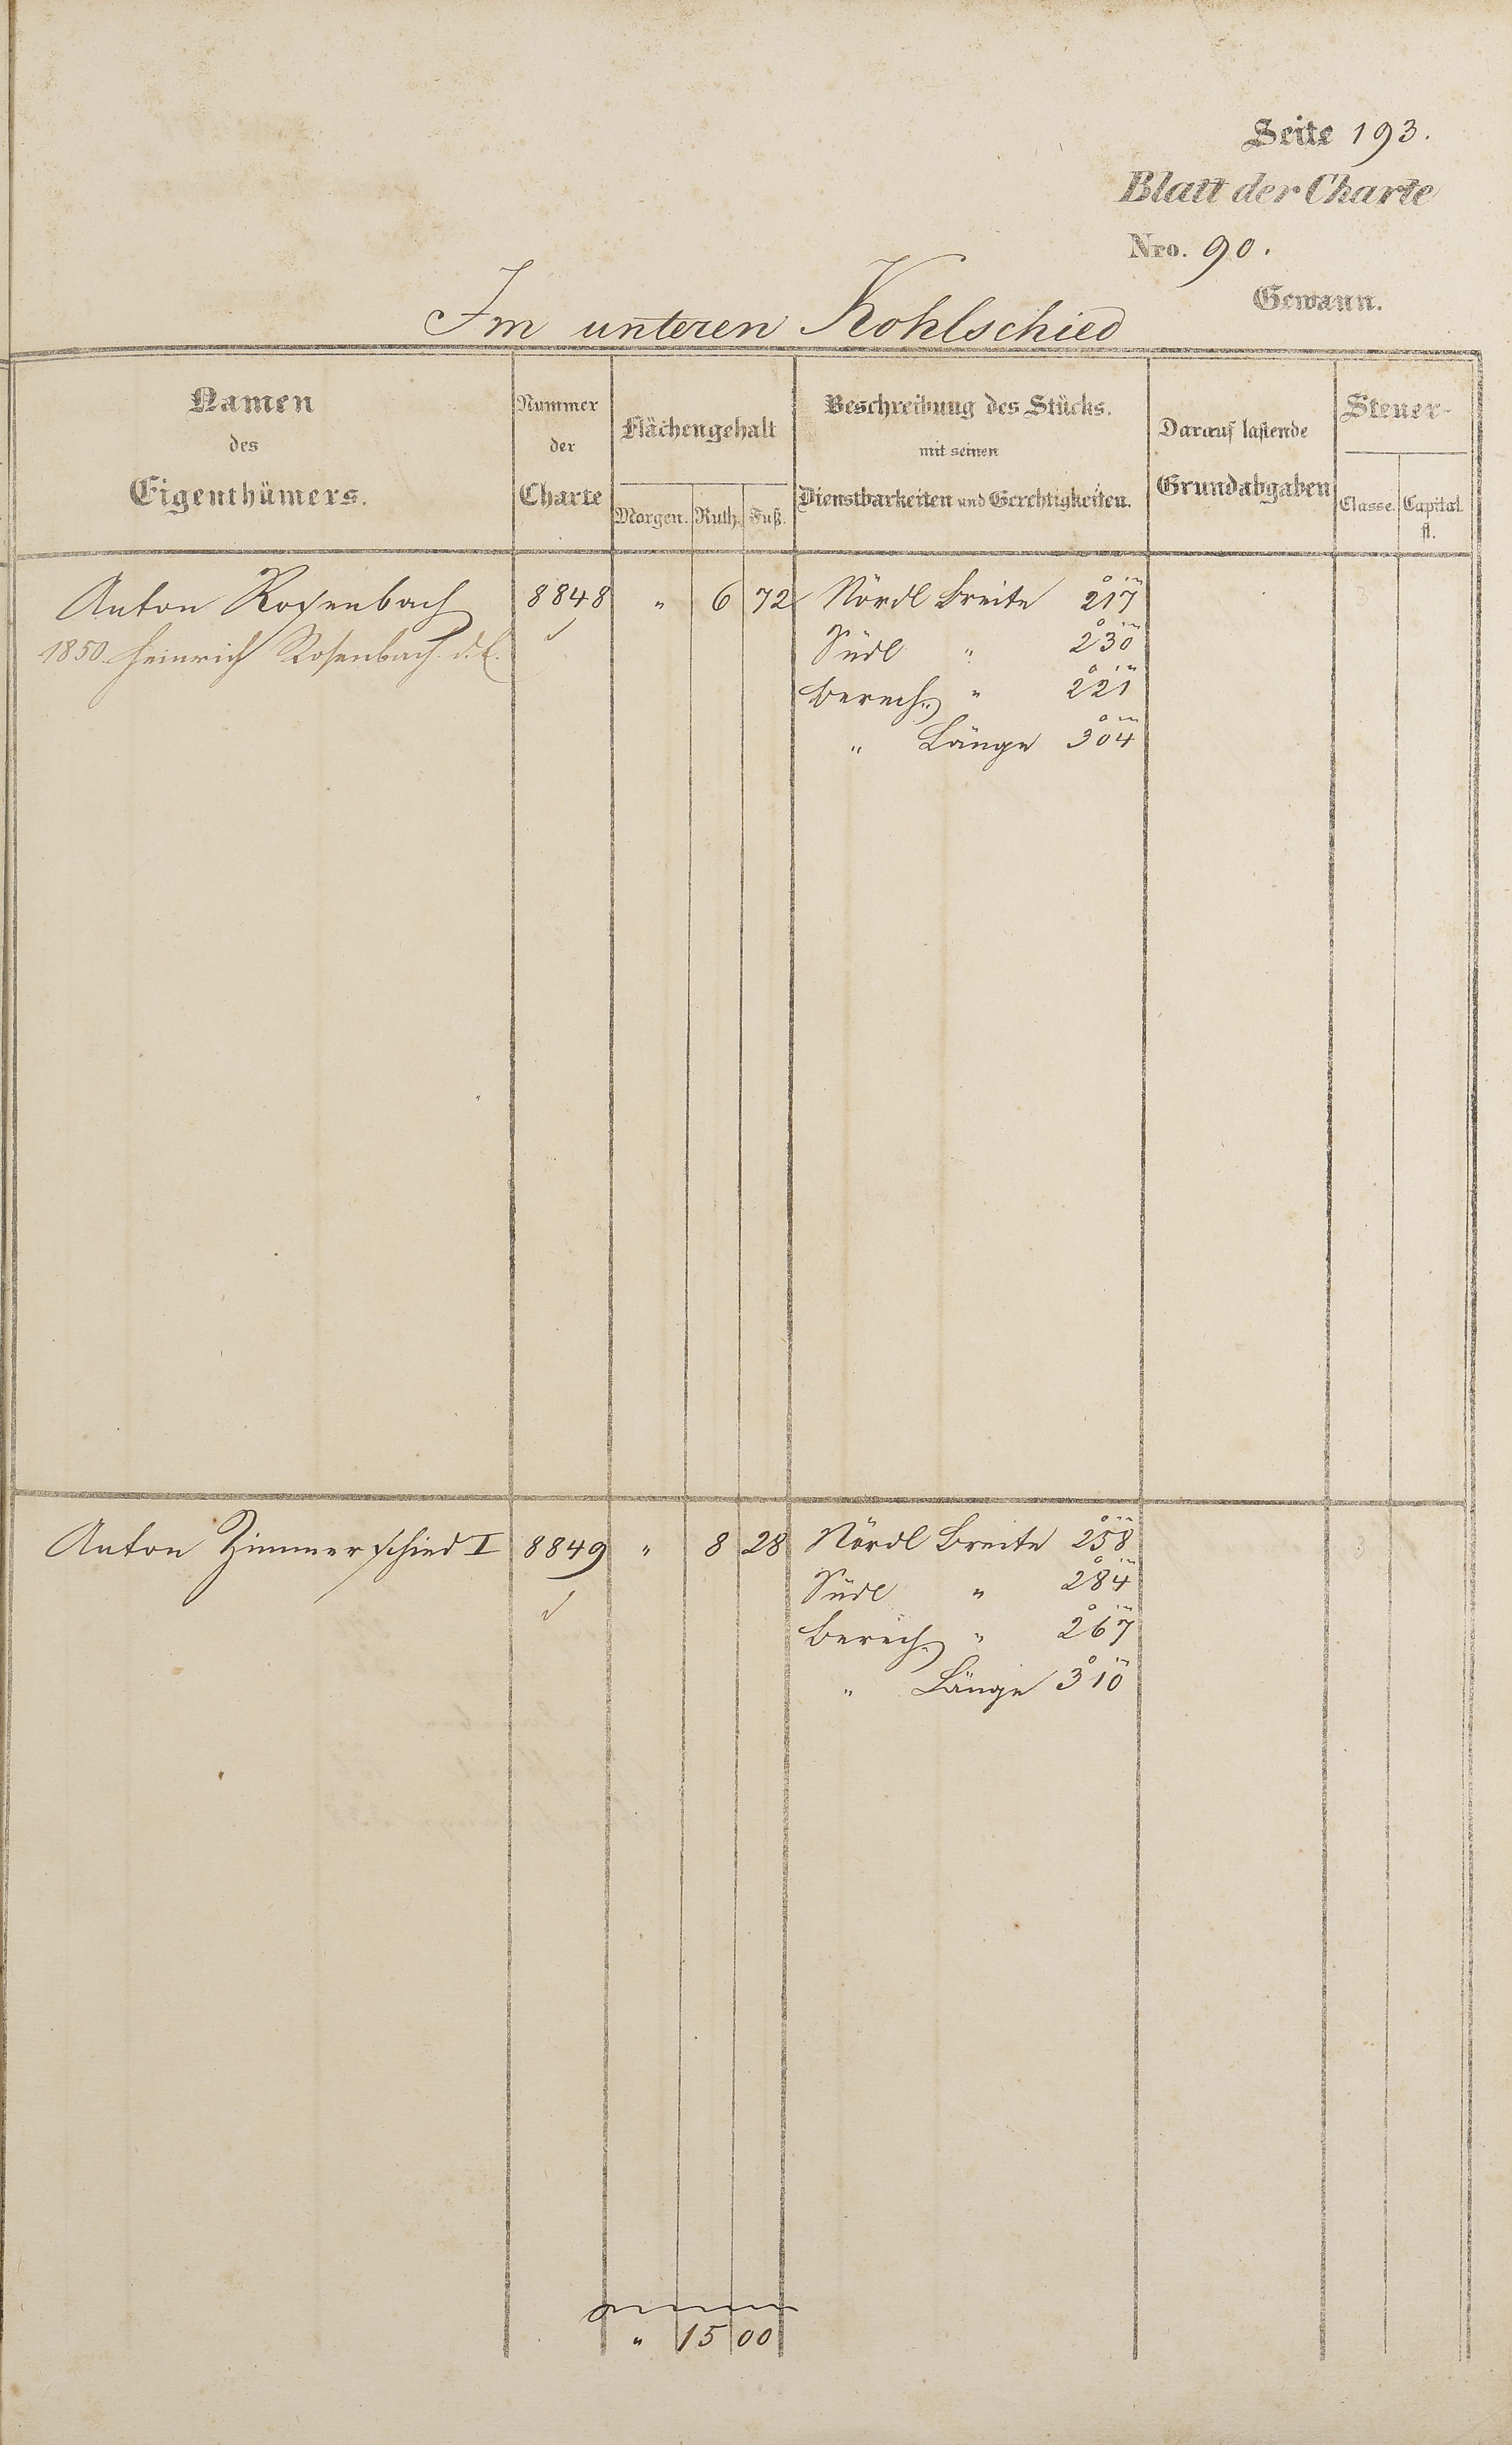 Seite 193.
Blatt der Charte
Nro. 90.
Gewann.
Im unteren Kohlschied
Namen des Eigenthümers.
Nummer der Charte
Flächengehalt
Morgen. Ruth. Fuß.
Beschreibung des Stücks.
mit seinen
Dienstbarkeiten und Gerechtigkeiten.
Darauf lastende
Grundabgaben
Steuer-
Classe. Capital. fl.
Anton Rosenbach 8848 " 6 72 Nördl Breite 217
1850 Heinrich Rosenbach Südl " 230
Berech. " 221
" Länge 304
Anton Zimmerschied I 8849 " 8 28 Nördl Breite 258
Südl " 284
Berech. " 267
" Länge 310
" 15 00